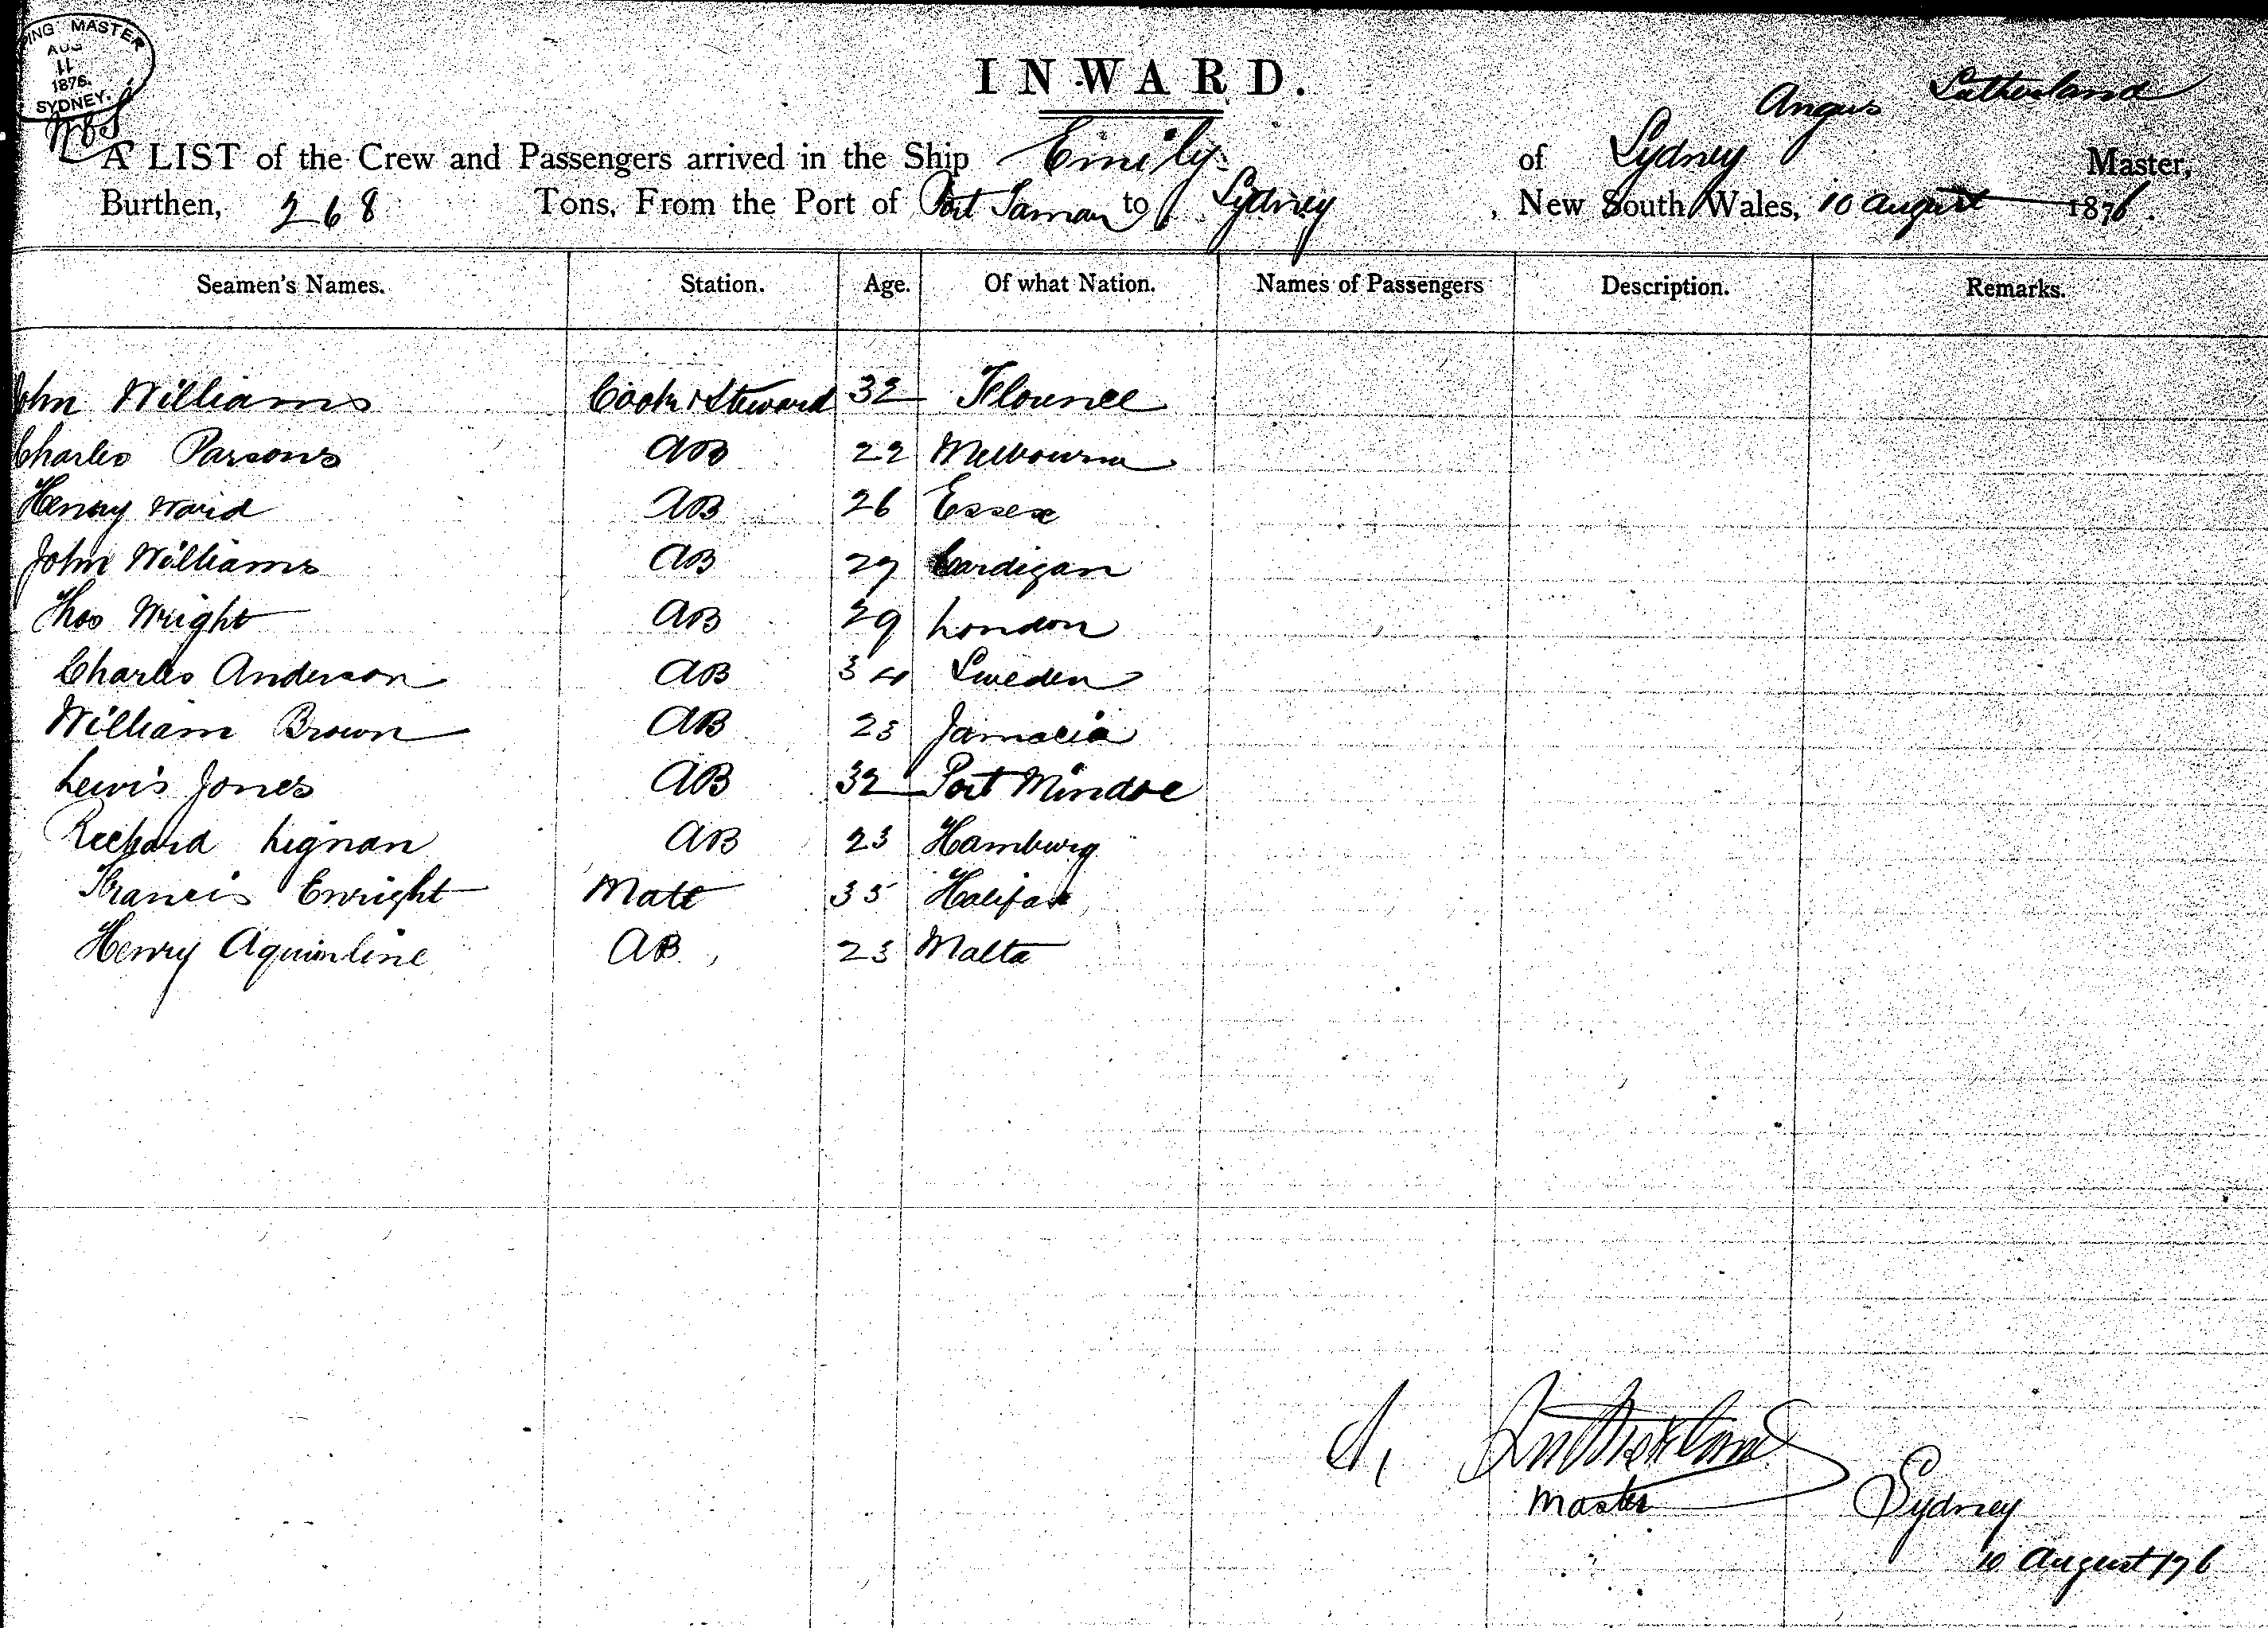 PING MASTER
AUG
11
1876.
SYDNEY.
INWARD.
Angus Sutherland
A LIST of the Crew and Passengers arrived in the Ship Emily of Sydney Master,
Burthen, 268 Tons, From the Port of Port to Sydney, New South Wales, 10 August 1876.
Seamen's Names. Station. Age. Of what Nation. Names of Passengers Description. Remarks.
John Williams Cook & Steward 32 Florence
Charles Parsons AB 22 Melbourne
Henry Ward AB 26 Essex
John Williams AB 27 Cardigan
Thos Wright AB 29 London
Charles Anderson AB 34 Sweden
William Brown AB 23 Jamacia
Lewis Jones AB 32 Port Mindoe
Richard Lignan AB 23 Hamburg
Francis Enright Mate 35 Halifax
Henry AB 23 Malta
A, Sutherland
Master
Sydney
10 August 176